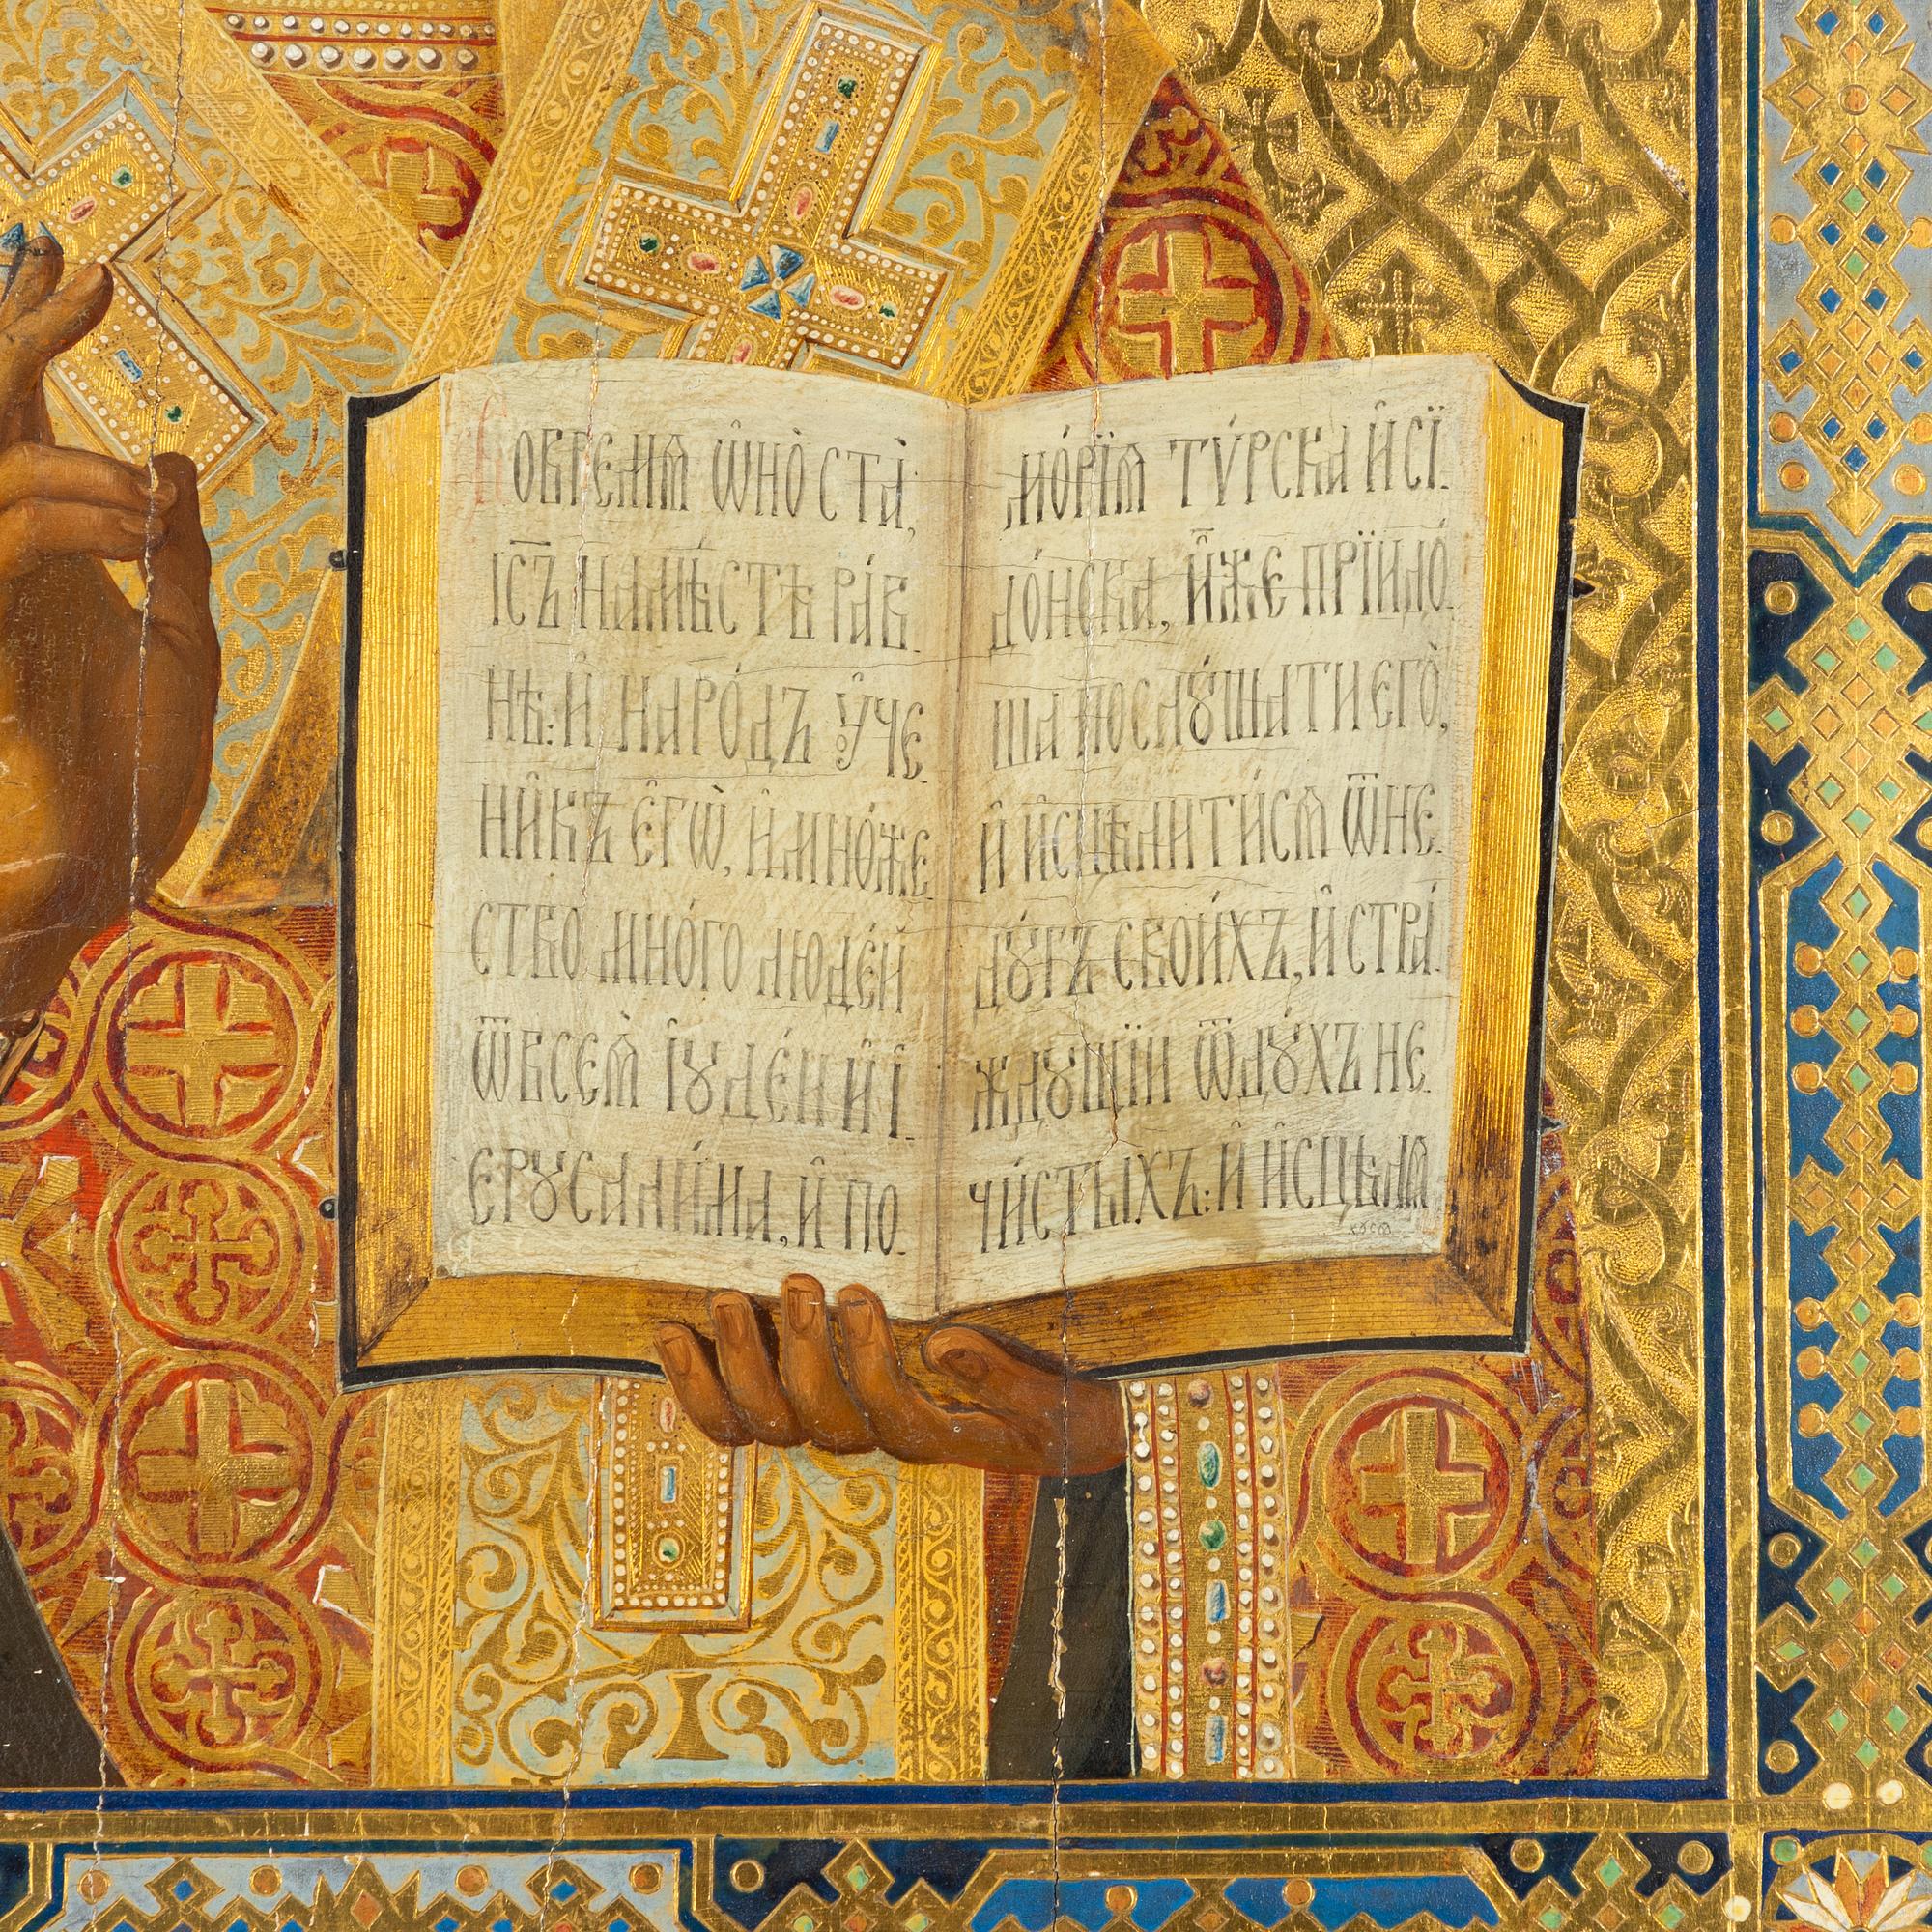 Во время ѡ҆но̀ ста̀
і҃съ на мѣ́стѣ ра́в
нѣ: и҆ наро́дъ ᲂу҆че
ни̑къ є҆гѡ̀, и҆ мно́же
ство мно́го люде́й
ѿ всеѧ̀ і҆ꙋде́и и҆ і҆
ерꙋсали́ма, и҆ по
мо́рїѧ тѵ́рска и҆ сї
до́нска, и҆̀же прїидо́
ша послꙋ́шати єго̀,
и҆ и҆сцѣли́тисѧ ѿ не
дꙋ́гъ свои́хъ, и҆ стра́
ждꙋщїи ѿ дꙋ́хъ не
чи́стыхъ: и҆ и҆сцѣлѧ
хꙋсѧ